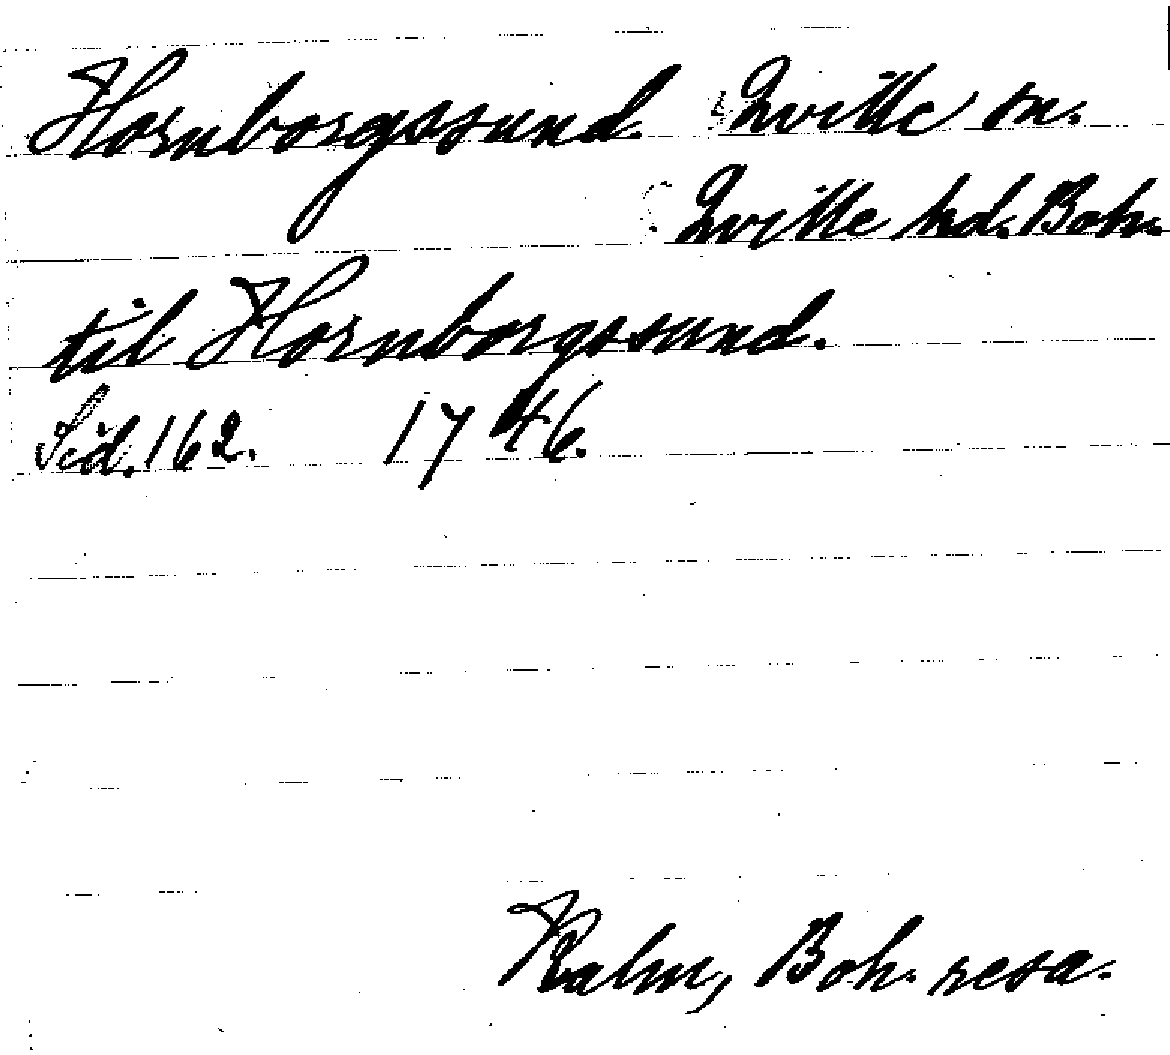 Hornborgssund. Qville sn.
Qville hd. Boh.
til Hornborgssund.
Sid. 162. 1746.
Kalm, Boh. resa.